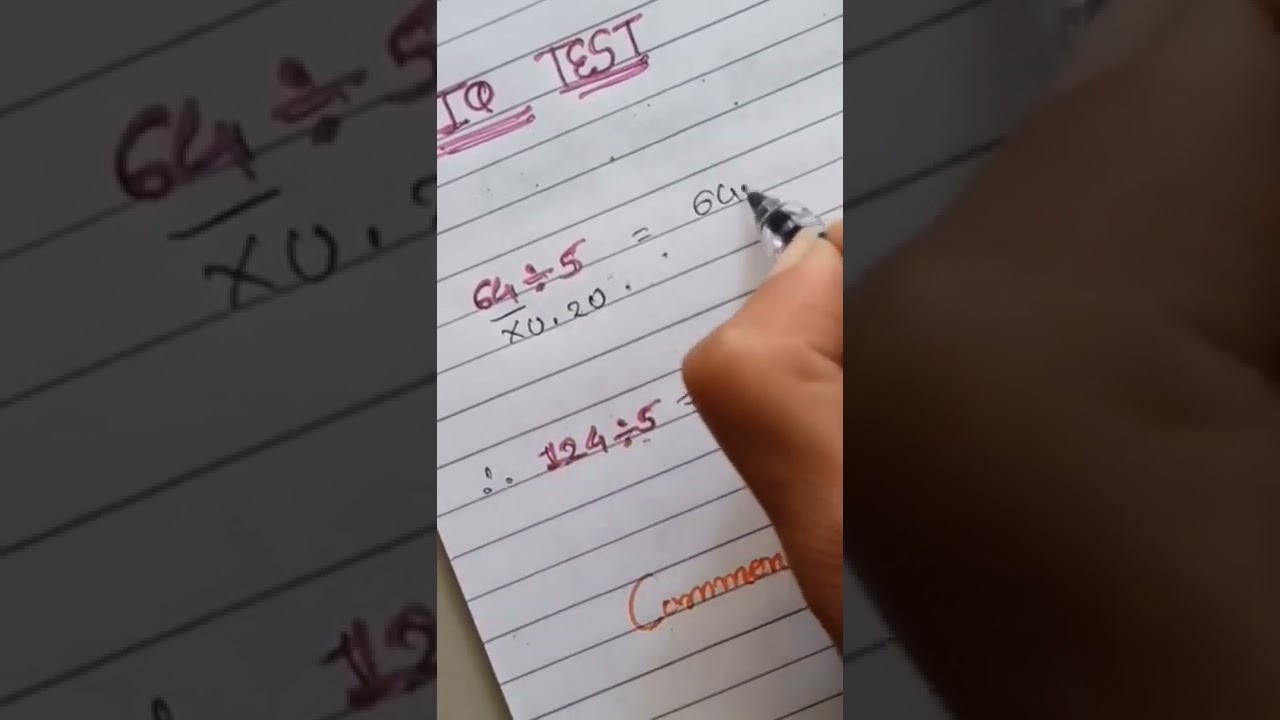 IQ TEST
64 ÷ 5 = 64.
x0.20.
∴ 124 ÷ 5 =
Commen